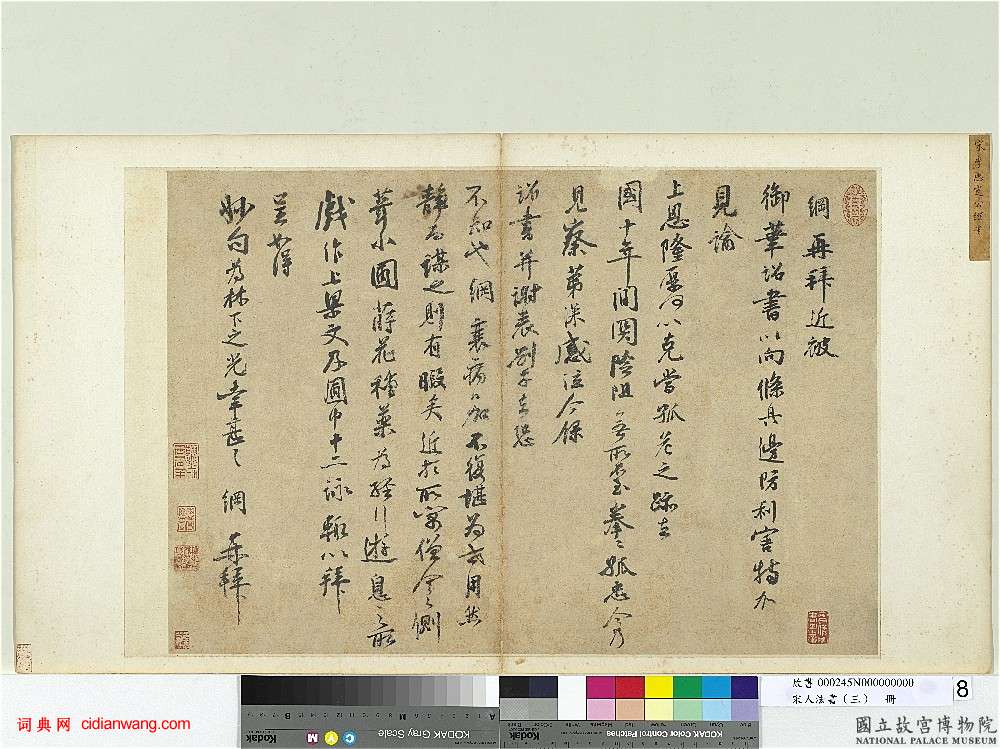 綱再拜近被
御筆詔書以向條具邊防利害特加
見諭
上恩隆厚何以克當孤危之跡去
國十年間關險阻無所不至拳拳孤忠今乃
見察第深感泣今錄
詔書并謝表劄子去恐
不知也綱衰病日加不復堪為世用然
靜為謀之則有暇矣近於所寓僧舍之側
葺小圃蒔花種藥為經行遊息之所
戲作上梁文及圃中十二詠輒以拜
呈如得
妙句為林下之光幸甚々綱再拜
故書 000245N000000000
宋人法書(三) 冊
8
Kodak
KODAK Gray Scale
KODAK Color Control Patches
词典网 cidianwang.com
國立故宮博物院
NATIONAL PALACE MUSEUM